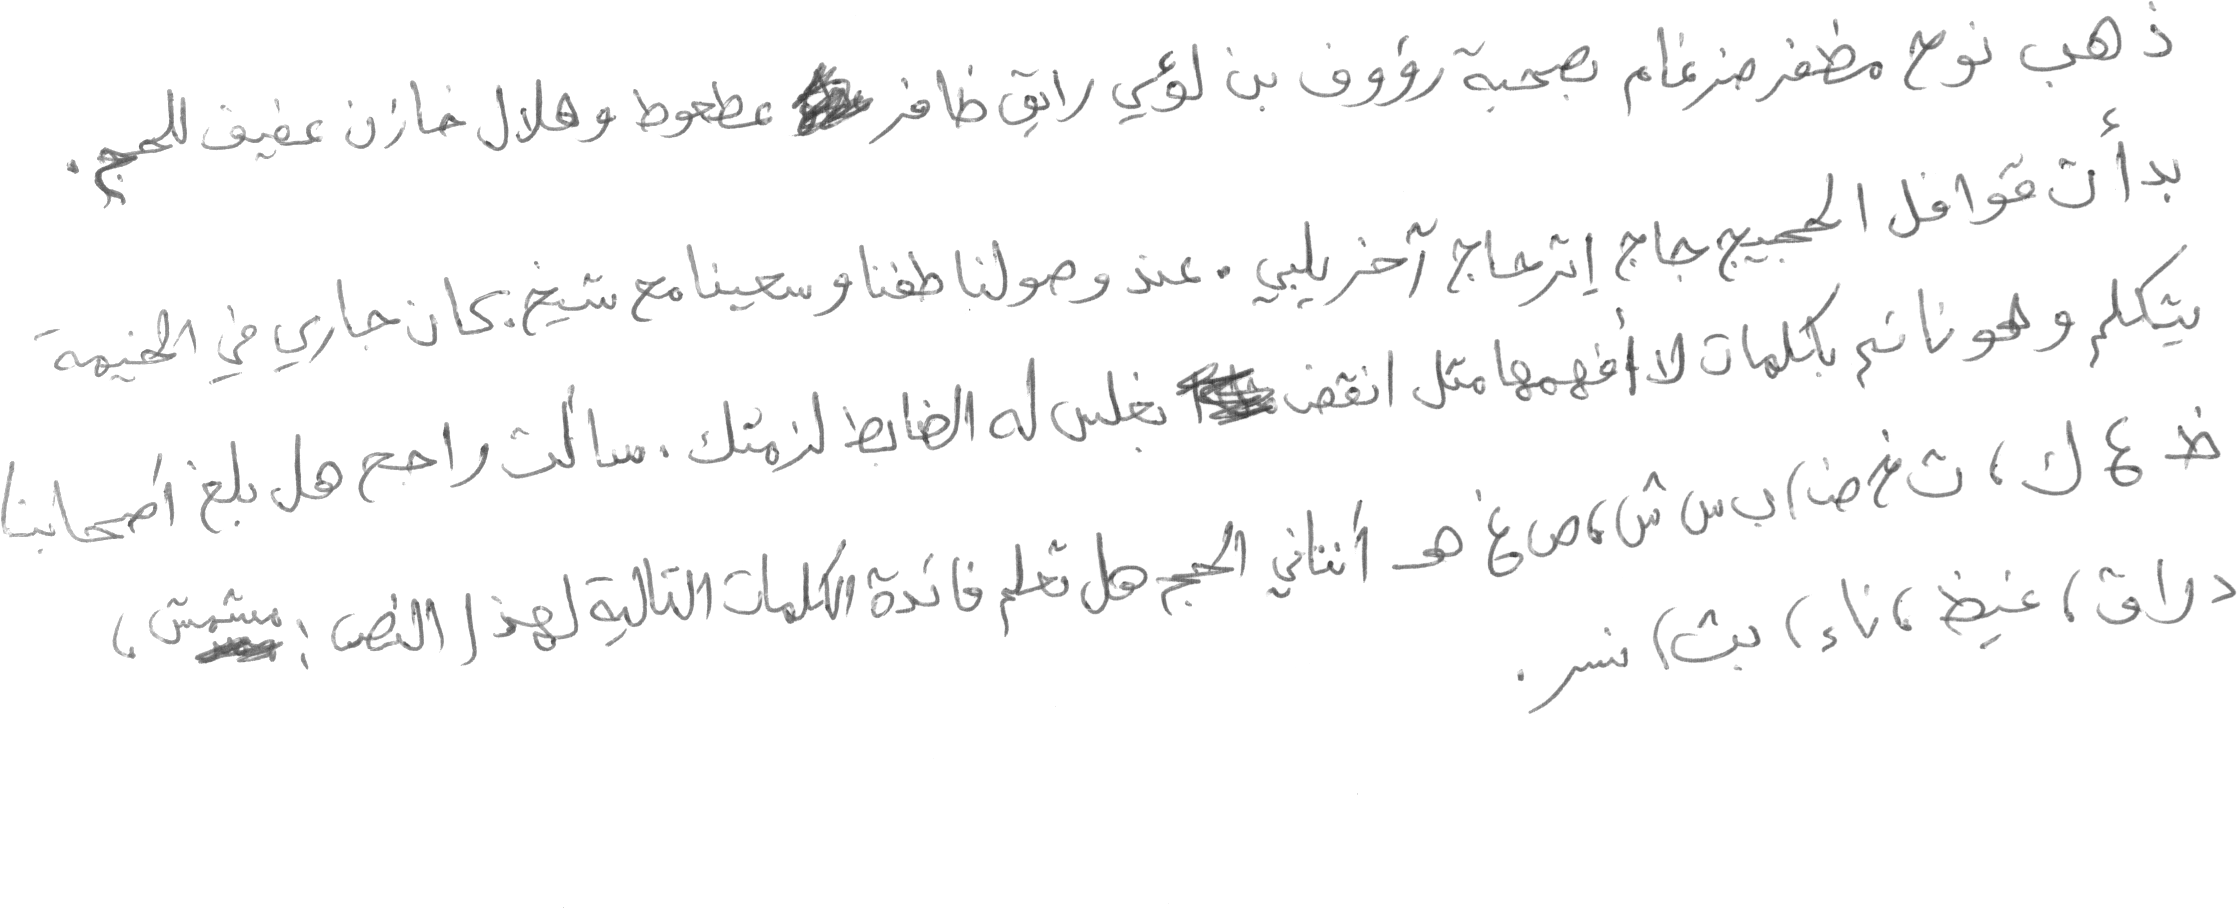 ذهب نوح مظفر ضرغام بصحبة رؤوف بن لؤي رايق ظافر عطعوط وهلال خازن عفيف للحج .
بدأت قوافل الحجيج حاج إثر حاج آخر يلبي . عند وصولنا طفنا وسعينا مع شيخ . كان جاري في الخيمة
يتكلم وهو نائم بكلمات لا أفهمها مثل انقض بغلس له الضابط لزمتك . سألت راجح هل بلغ أصحابنا
ظ ع ك ، ت غ ض ، ب س ش ، ص غ هـ أثناني الحج هل تعلم فائدة الكلمات التالية لهذا النص : مشمش ،
دراق ، غيظ ، ناء ، بث ، نسر .